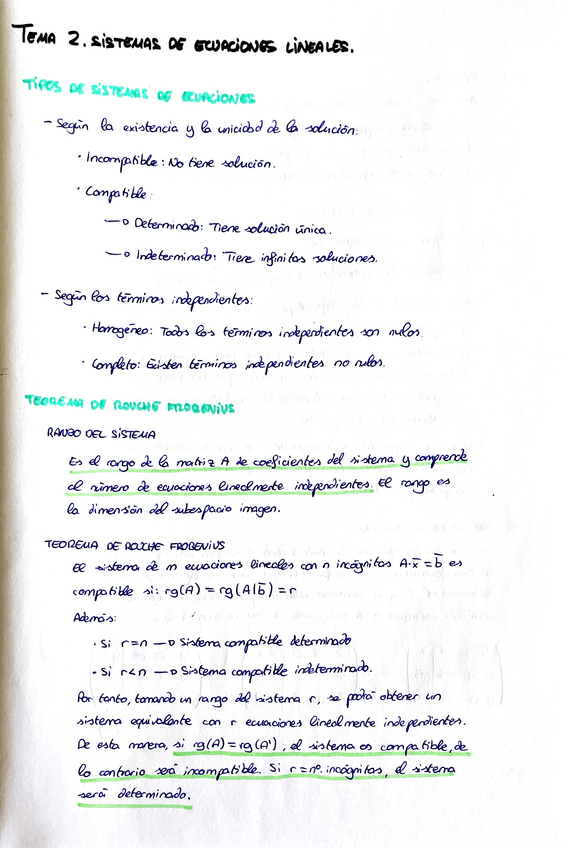 TEMA 2. SISTEMAS DE ECUACIONES LINEALES.
TIPOS DE SISTEMAS DE ECUACIONES
- Según la existencia y la unicidad de la solución:
· Incompatible: No tiene solución.
· Compatible:
→ Determinado: Tiene solución única.
→ Indeterminado: Tiene infinitas soluciones.
- Según los términos independientes:
· Homogéneo: Todos los términos independientes son nulos.
· Completo: Existen términos independientes no nulos.
TEOREMA DE ROUCHÉ FROBENIUS
RANGO DEL SISTEMA
Es el rango de la matriz A de coeficientes del sistema y comprende
al número de ecuaciones linealmente independientes. El rango es
la dimensión del subespacio imagen.
TEOREMA DE ROUCHE FROBENIUS
El sistema de m ecuaciones lineales con n incógnitas A·x̄ = b̄ es
compatible si: rg(A) = rg(A|b̄) = r
Además:
· Si r=n → Sistema compatible determinado
· Si r<n → Sistema compatible indeterminado.
Por tanto, tomando un rango del sistema r, se podrá obtener un
sistema equivalente con r ecuaciones linealmente independientes.
De esta manera, si rg(A) = rg(A'), el sistema es compatible, de
lo contrario será incompatible. Si r = nº. incógnitas, el sistema
será determinado.